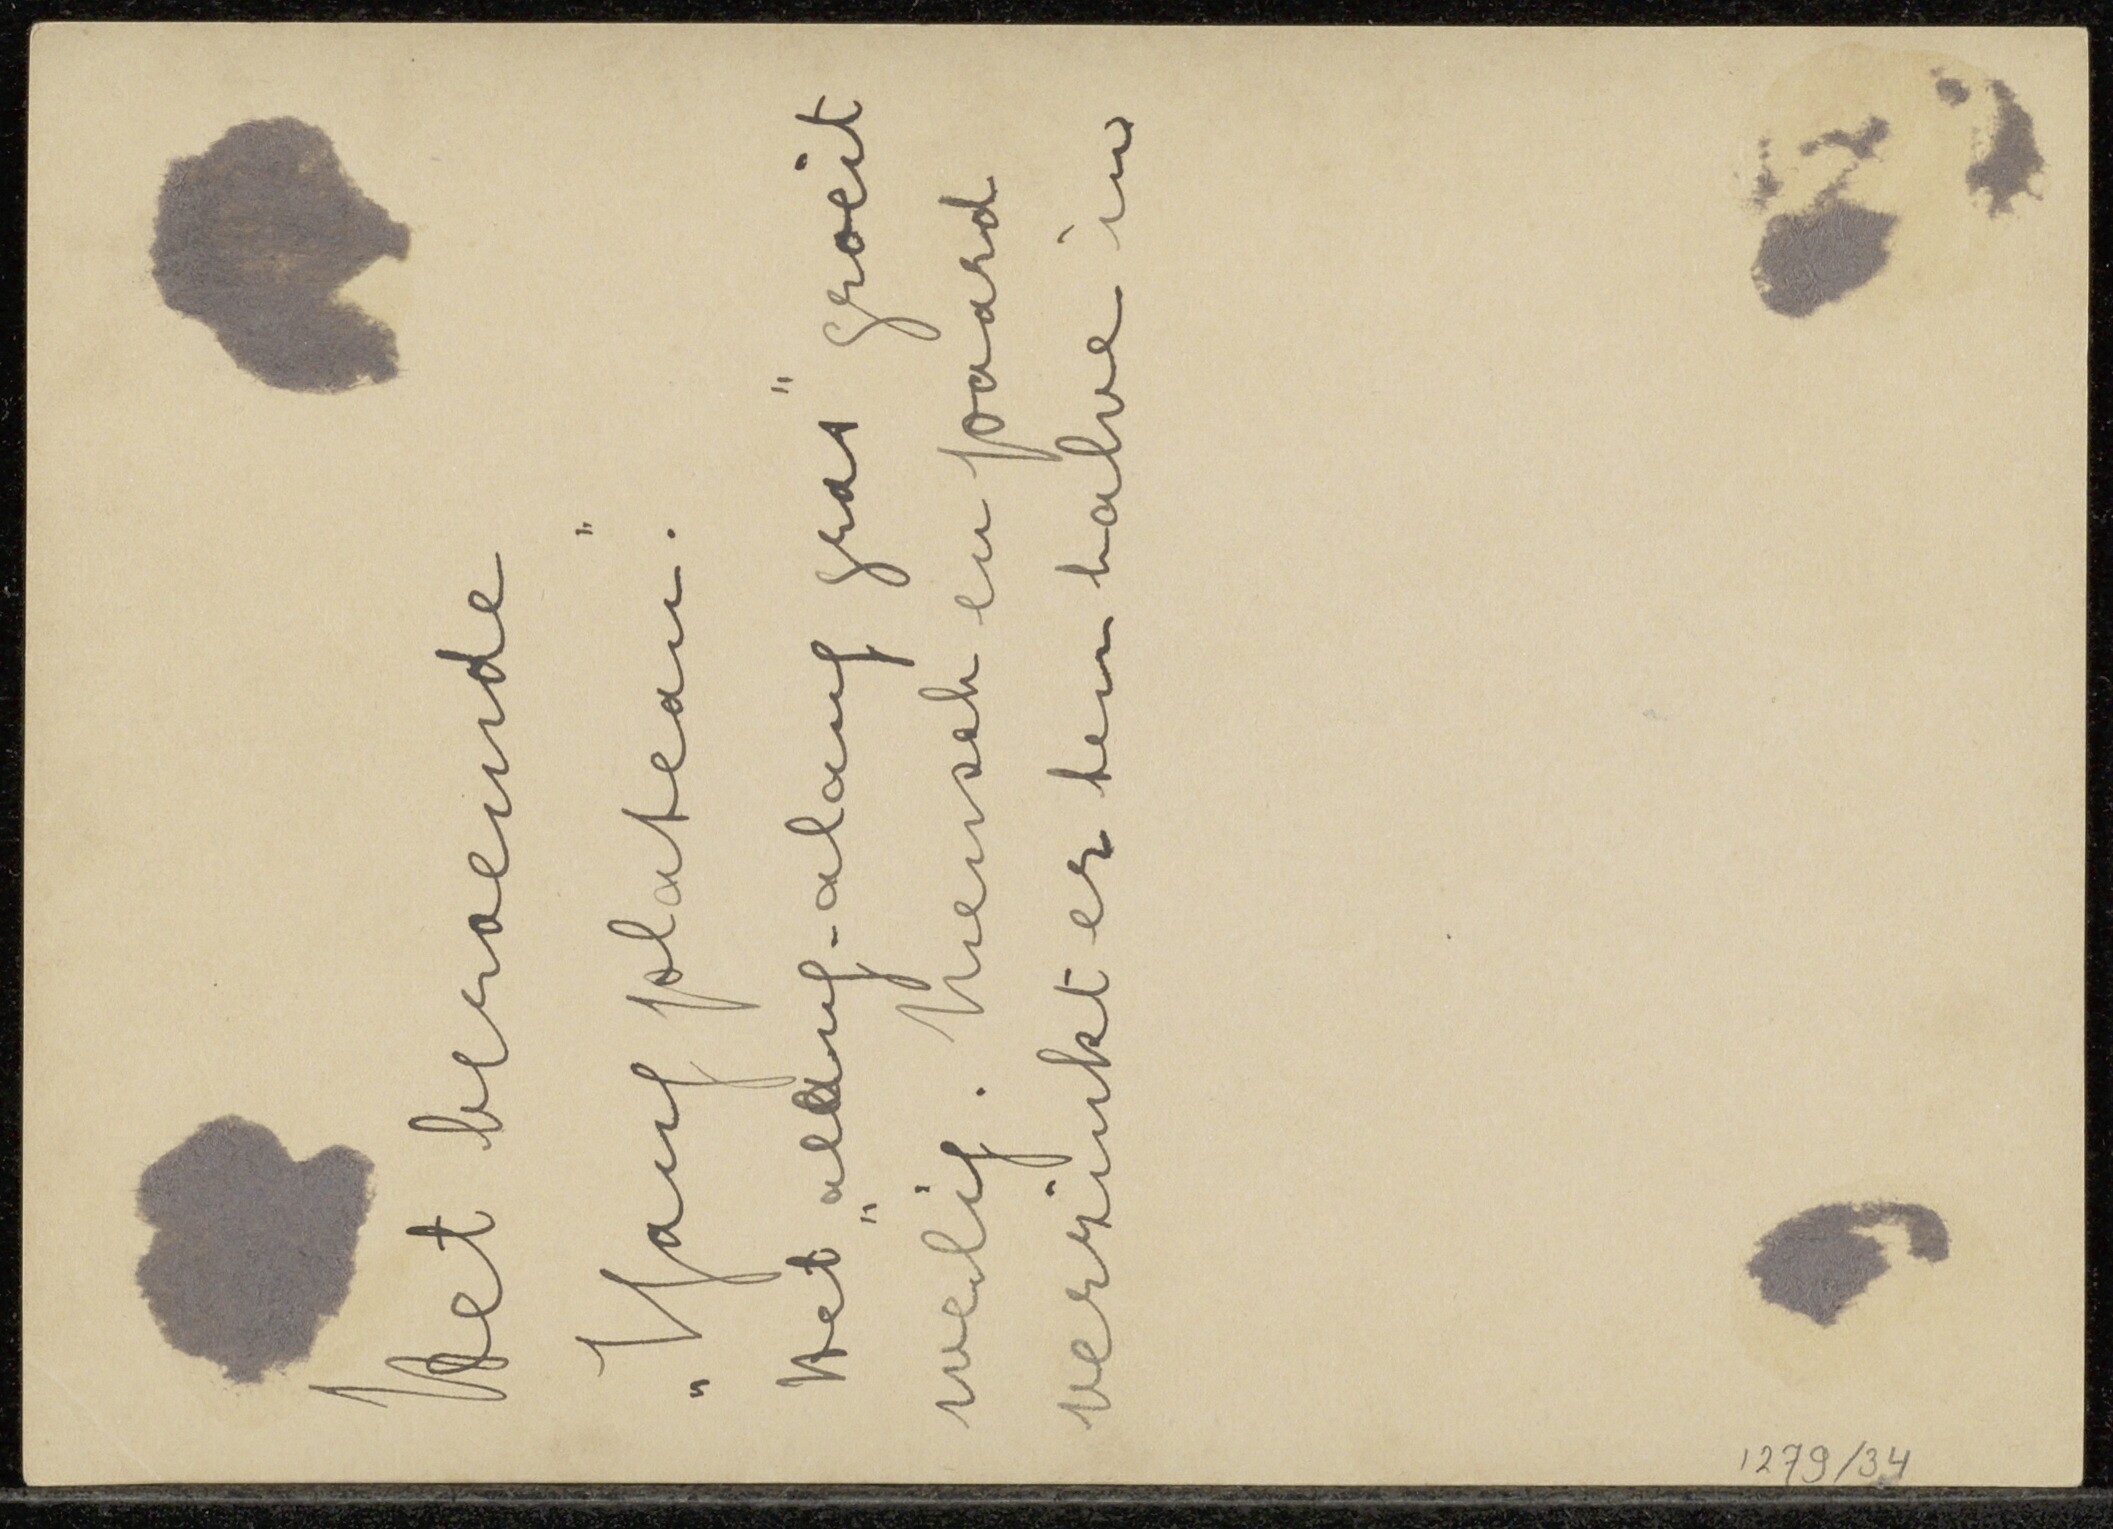 Het beroemde
"Yang plateau".
Het "alang-alang gras" groeit
welig. Mensch en paard
verzinkt er ten halve in
1279/34